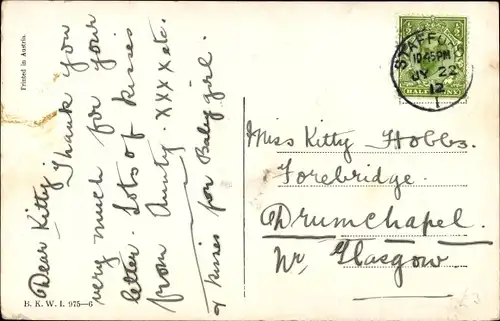 Dear Kitty.
Thank you
very much for your
letter. Lots of kisses
from Aunty. XXXX etc.
& kisses for Baby girl.
Printed in Austria.
B. K. W. I. 975—6
STAFFORD
10.45 PM
JY 22
12
1
HALFPENNY
Miss Kitty Hobbs.
Forebridge.
Drumchapel.
Nr. Glasgow.